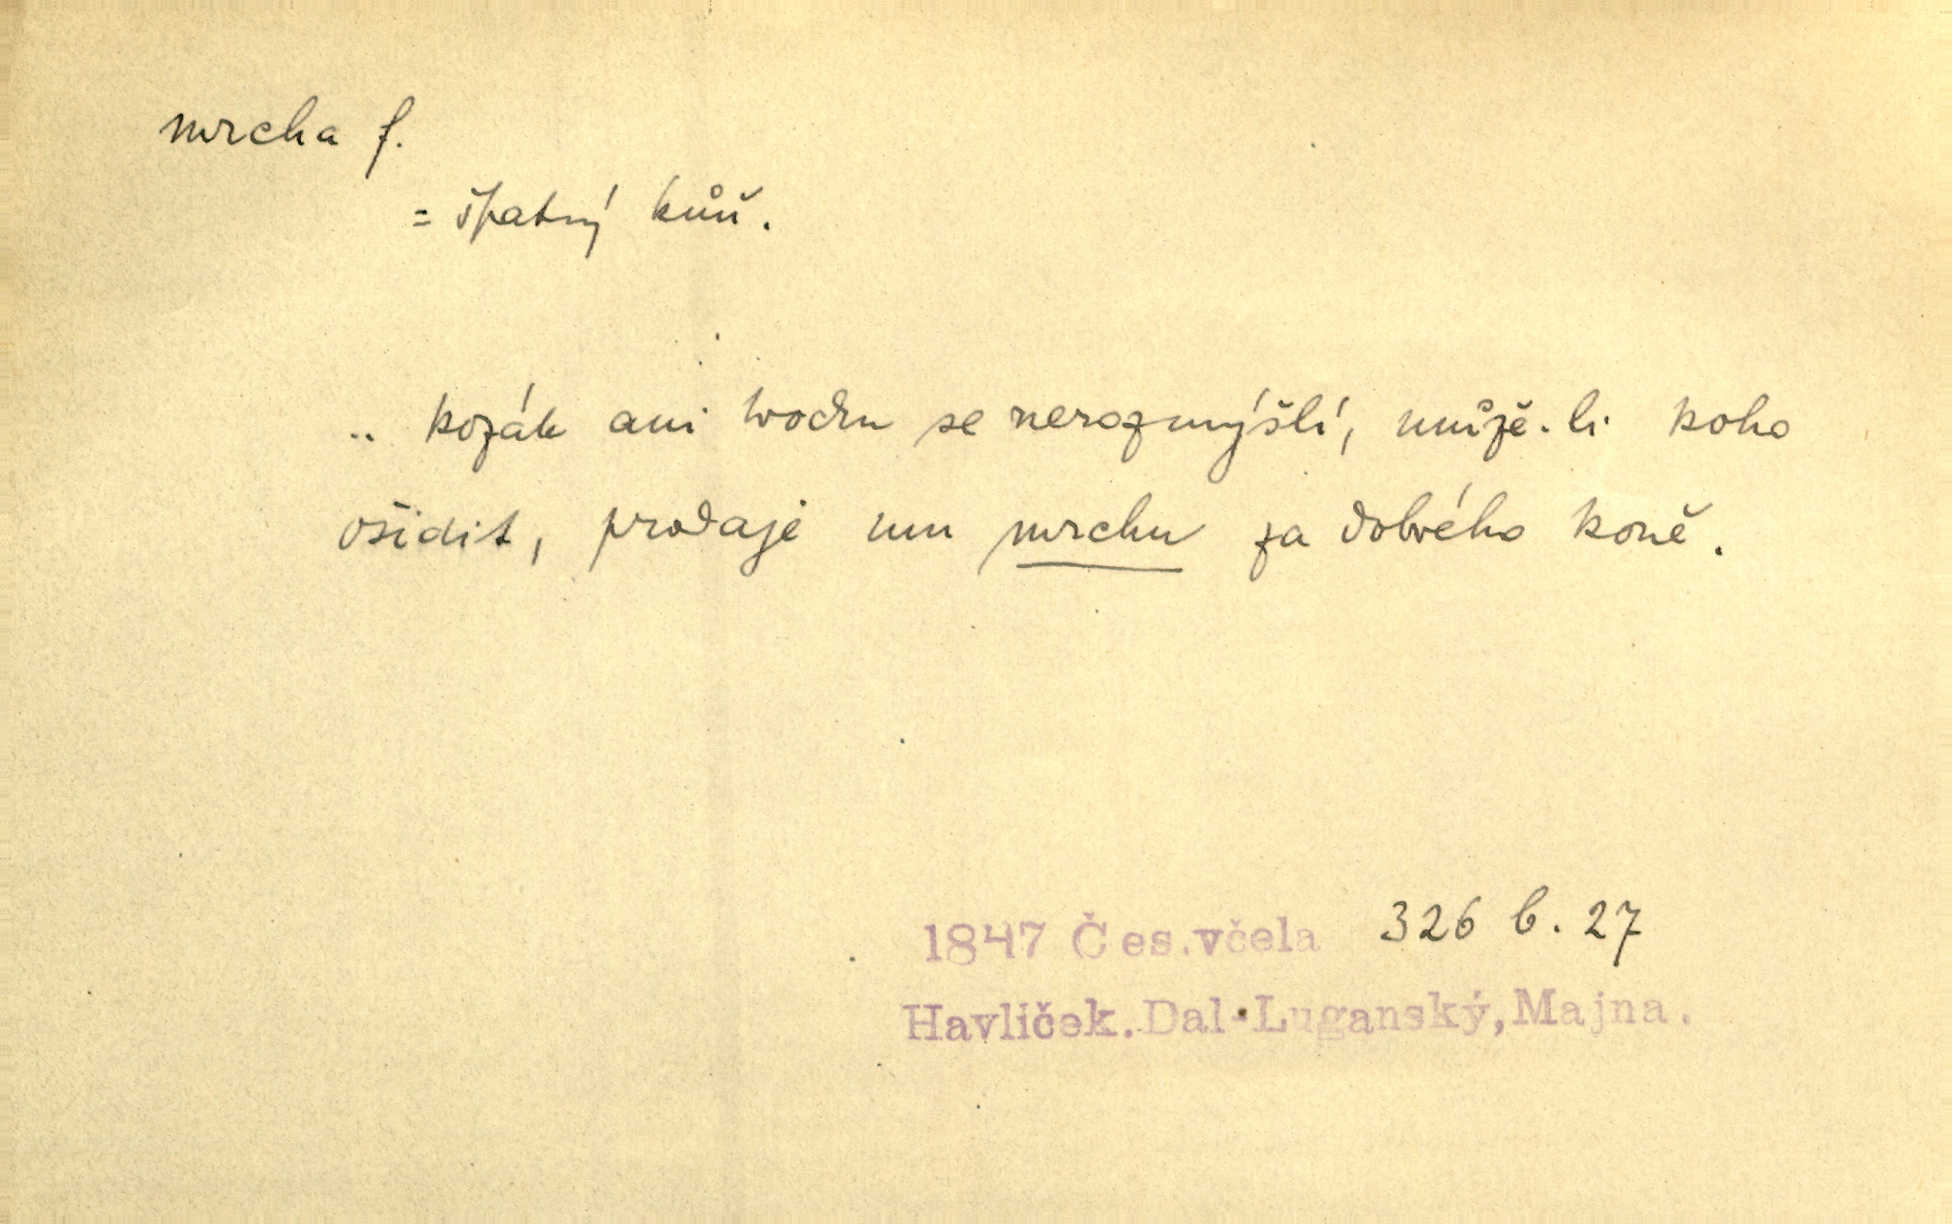 mrcha f.
= špatný kůň.
.. kozák ani trochu se nerozmýšlí, může-li koho
ošidit, prodaje mu mrchu za dobrého koně.
1847 Čes.včela 326 b. 27
Havlíček.Dal-Luganský,Majna.